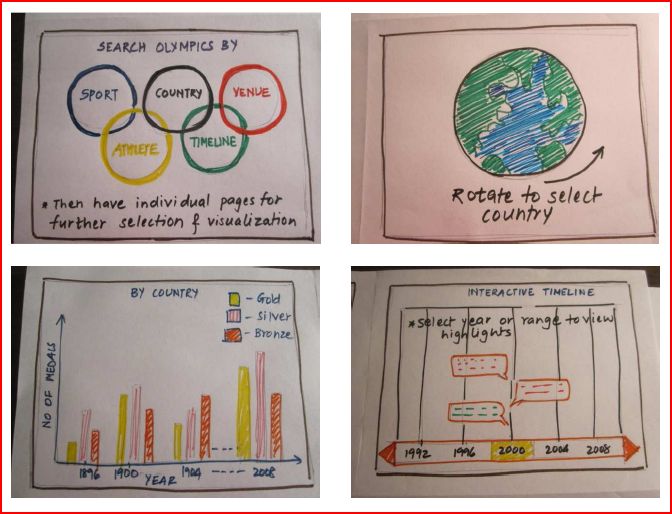 SEARCH OLYMPICS BY
SPORT
COUNTRY
VENUE
ATHLETE
TIMELINE
* Then have individual pages for
further selection & visualization
Rotate to select
country
BY COUNTRY
- Gold
- Silver
- Bronze
NO OF MEDALS
1896 1900 1904 ---- 2008
YEAR
INTERACTIVE TIMELINE
* select year or range to view
highlights
1992 1996 2000 2004 2008